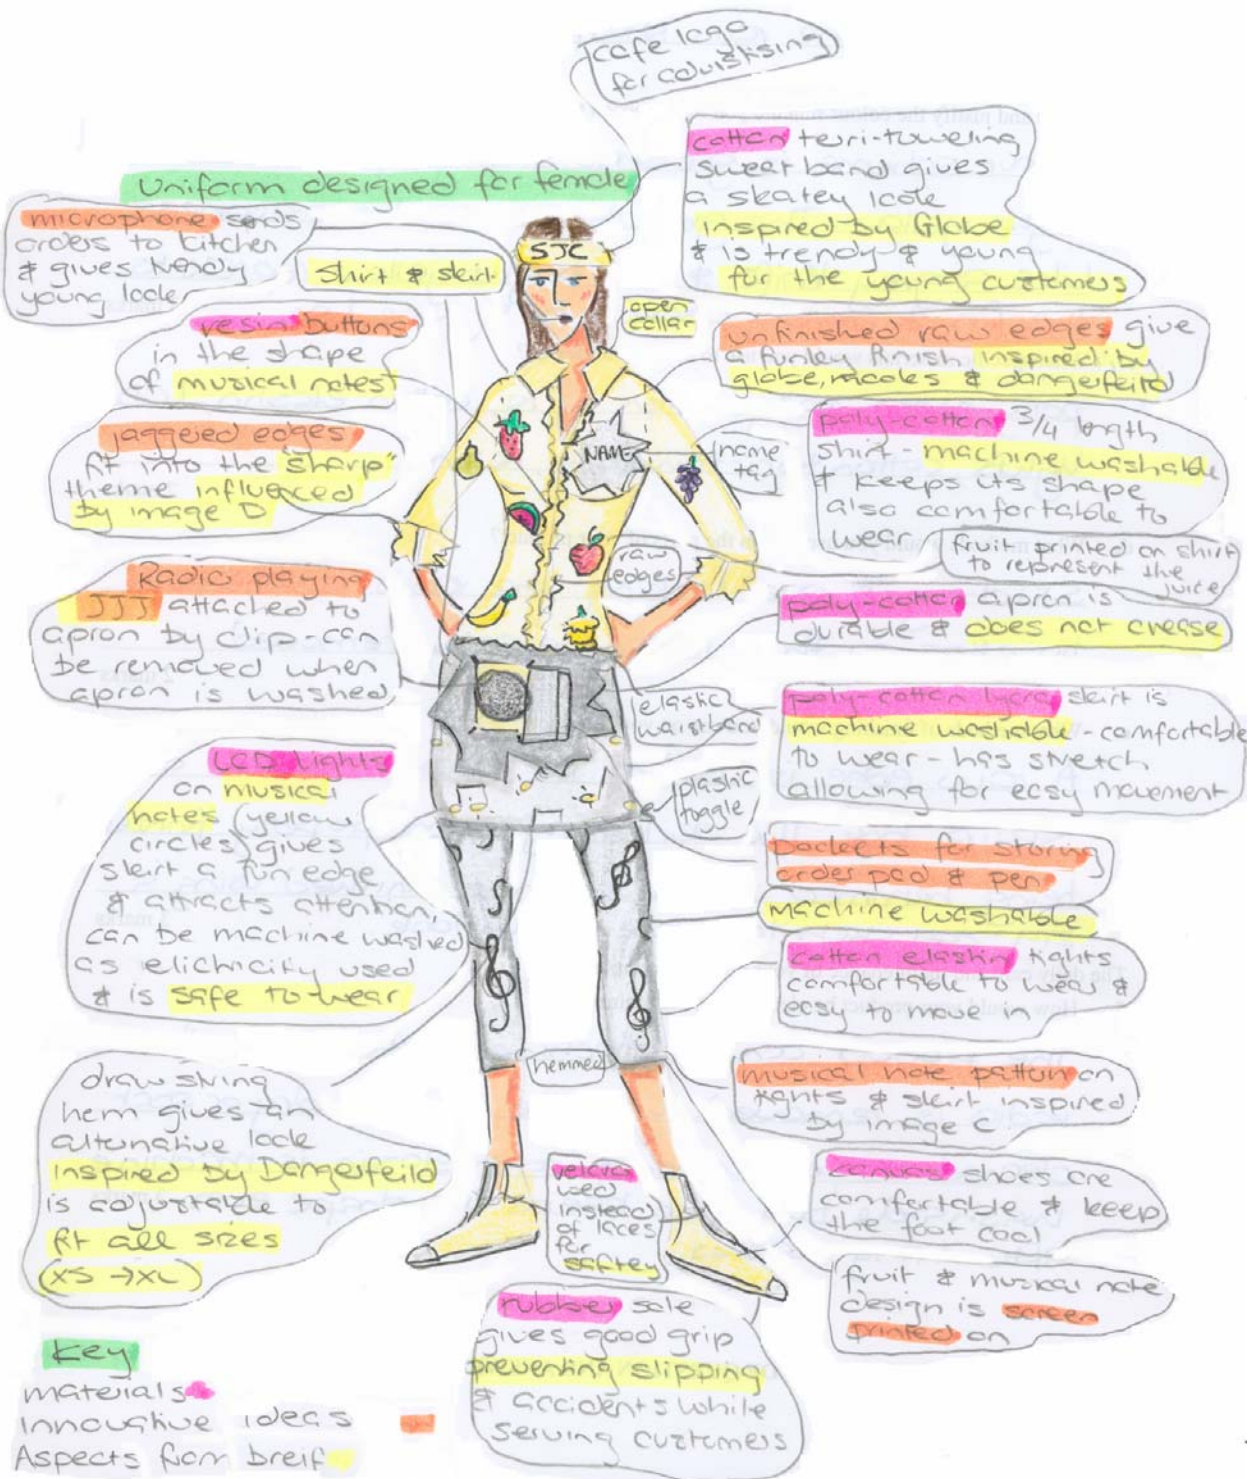 cafe logo
for advirtising
uniform designed for female
microphone sends
orders to kitchen
& gives trendy
young look
shirt & skirt
SJC
cotton terri-toweling
sweat band gives
a skatey look
inspired by Globe
& is trendy & young
for the young customers
open
collar
resin buttons
in the shape
of musical notes
unfinished raw edges give
a funky finish inspired by
globe, mooks & dangerfeild
jaggered edges
fit into the "sharp"
theme influenced
by image D
NAME
name
tag
poly-cotton 3/4 length
shirt - machine washable
& keeps its shape
also comfortable to
wear
fruit printed on shirt
to represent the
juice
raw
edges
Radio playing
JJJ attached to
apron by clip - can
be removed when
apron is washed
poly-cotton apron is
durable & does not crease
elastic
waistband
poly-cotton lycra skirt is
machine washable - comfortable
to wear - has stretch
allowing for easy movement
LCD lights
on musical
notes (yellow
circles) gives
skirt a fun edge
& attracts attention,
can be machine washed
as elichicity used
& is safe to wear
plastic
toggle
Pockets for storing
order pad & pen
machine washable
cotton elastin tights
comfortable to wear &
easy to move in
hemmed
musical note pattern on
tights & skirt inspired
by image C
draw string
hem gives an
alternative look
inspired by Dangerfeild
is adjustable to
fit all sizes
(XS → XL)
velcro
used
instead
of laces
for
saftey
canvas shoes are
comfortable & keep
the foot cool
fruit & musical note
design is screen
printed on
rubber sole
gives good grip
preventing slipping
& accidents while
serving customers
Key
materials
Innovative ideas
Aspects from breif